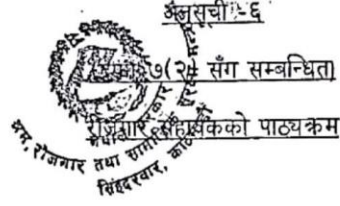 अनुसूची -६
७(२) सँग सम्बन्धित
रोजगार सहायकको पाठ्यक्रम
श्रम, रोजगार तथा सामाजिक
सिंहदरवार,